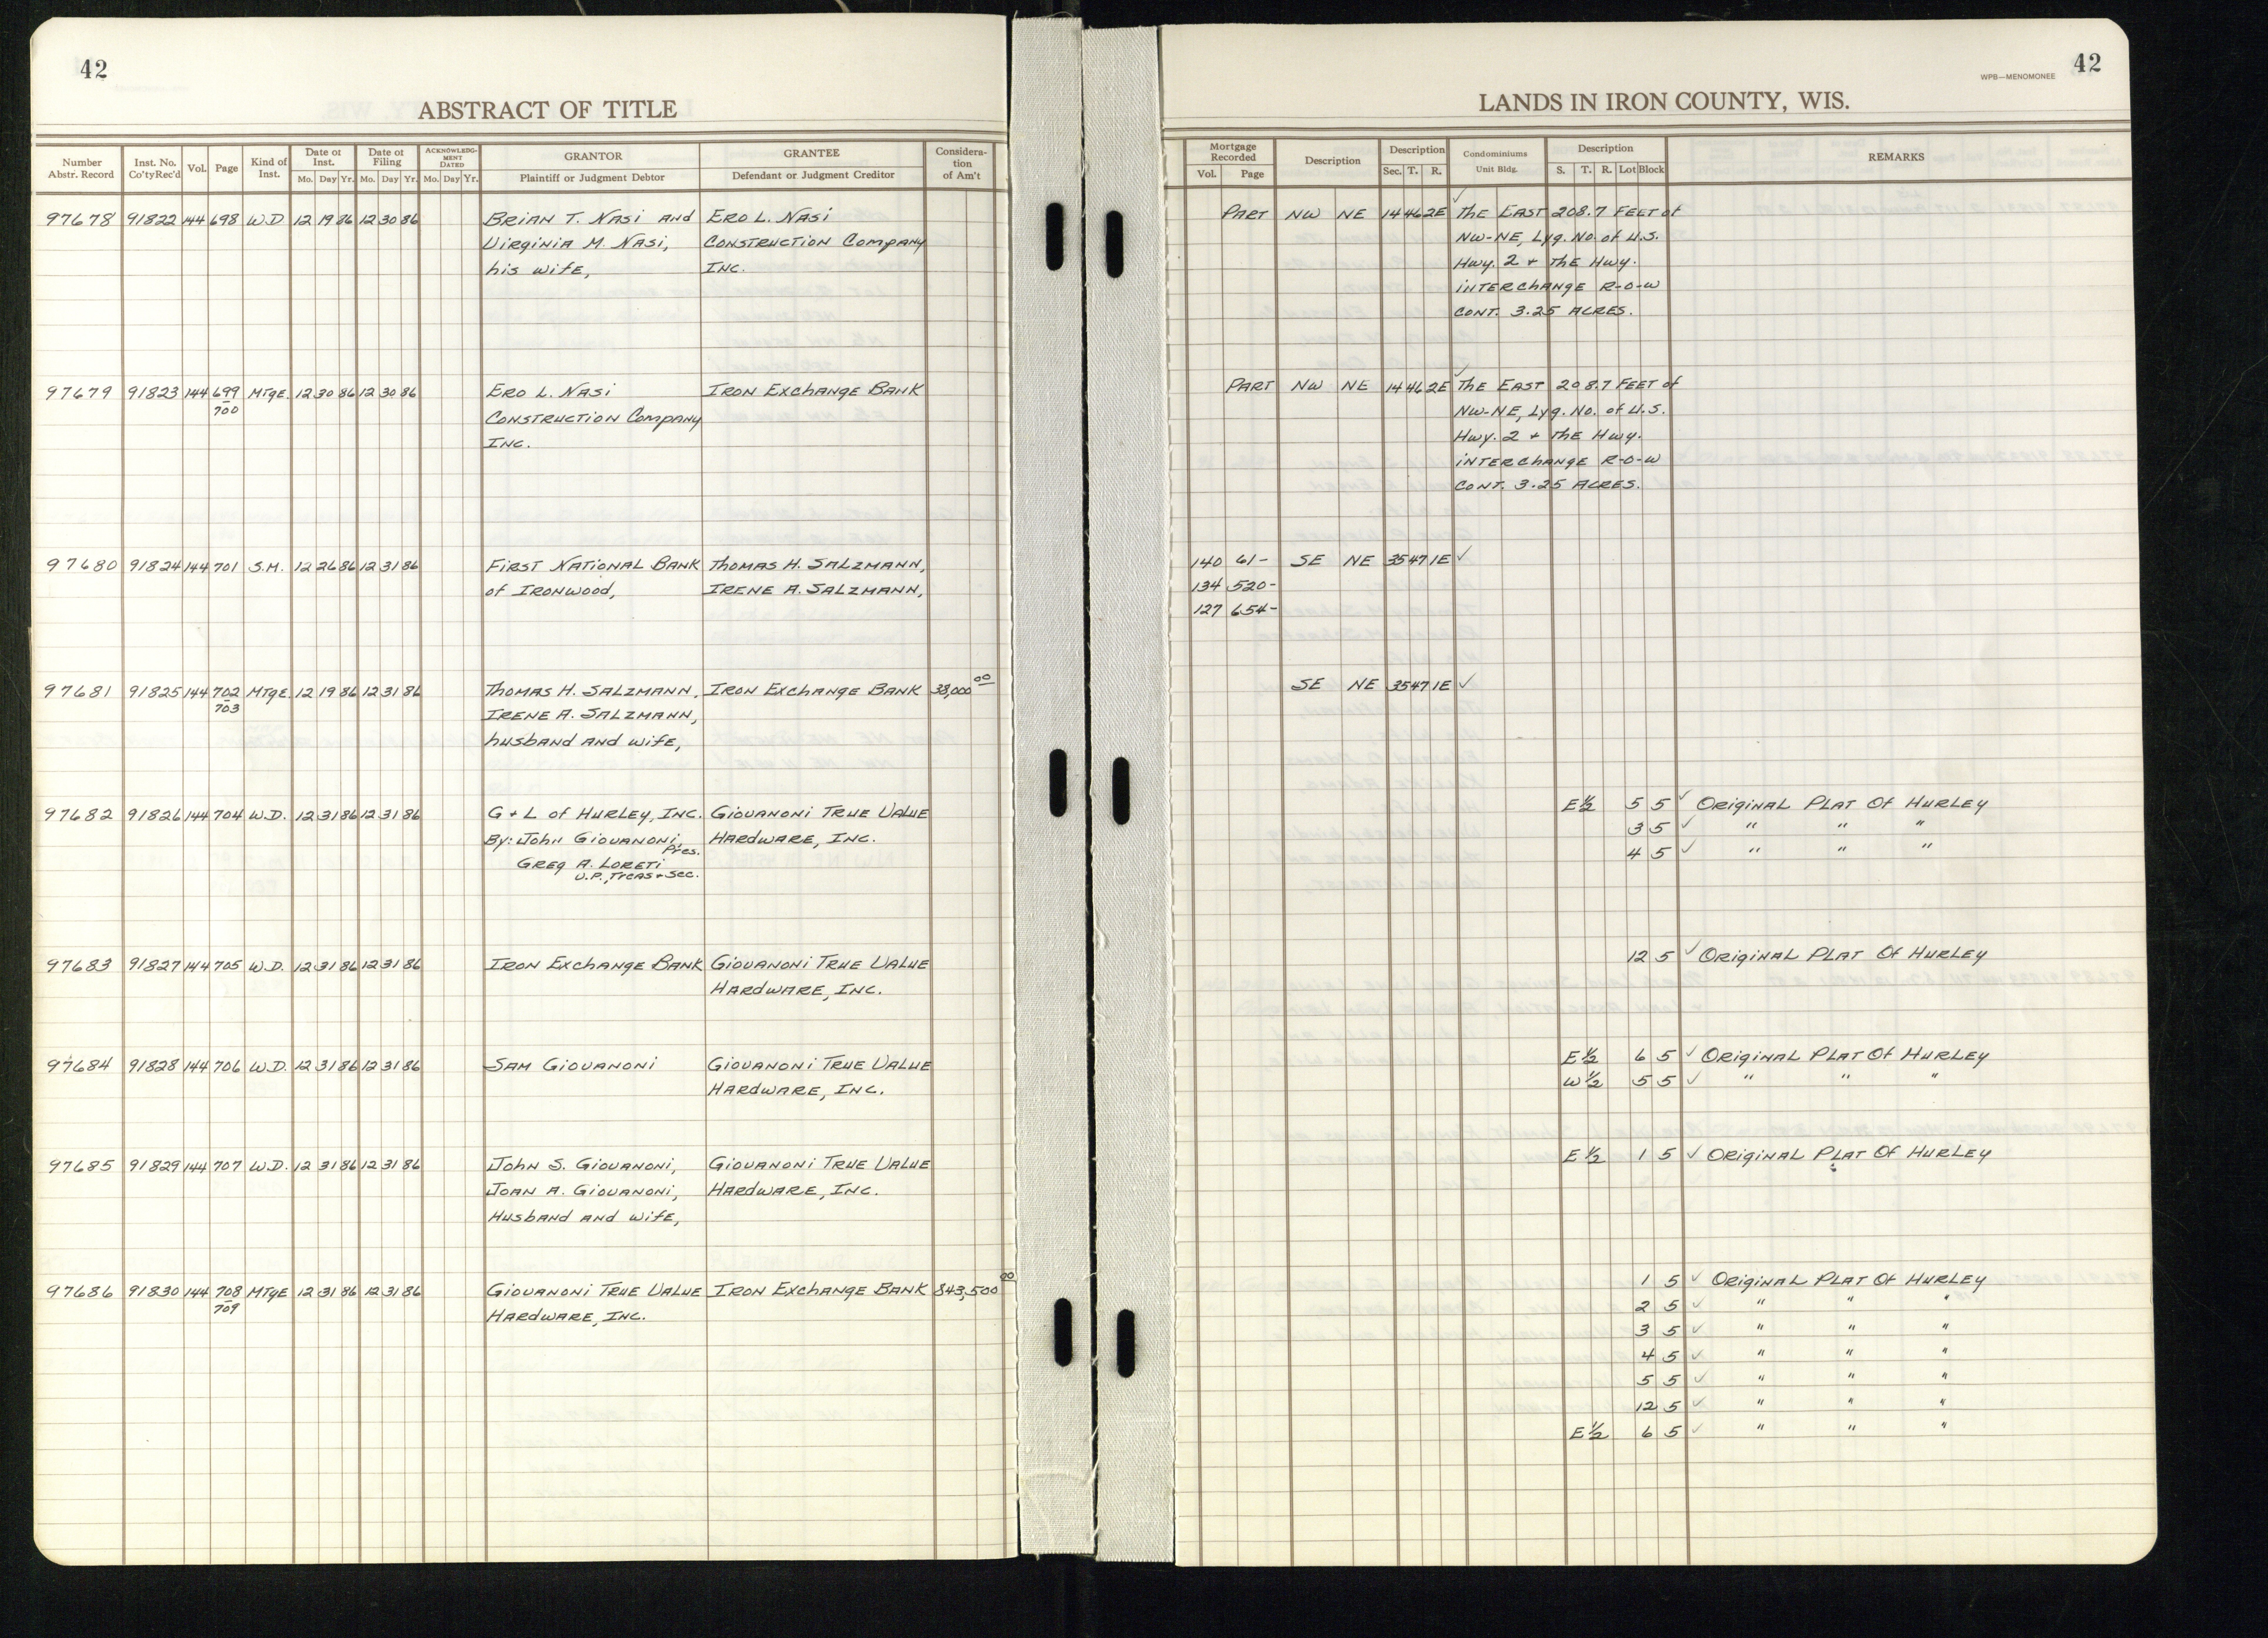 42
ABSTRACT OF TITLE
Number Abstr. Record Inst. No. Co'tyRec'd Vol. Page Kind of Inst. Date of Inst. Mo. Day Yr. Date of Filing Mo. Day Yr. ACKNOWLEDGMENT DATED Mo. Day Yr. GRANTOR Plaintiff or Judgment Debtor GRANTEE Defendant or Judgment Creditor Consideration of Am't
97678 91822 144 698 W.D 12 19 86 12 30 86 Brian T. Nasi and Ero L. Nasi
Virginia M. Nasi, Construction Company
his wife, Inc.
97679 91823 144 699 Mtge. 12 30 86 12 30 86 Ero L. Nasi Iron Exchange Bank
700 Construction Company
Inc.
97680 91824 144 701 S.M. 12 26 86 12 31 86 First National Bank Thomas H. Salzmann,
of Ironwood, Irene A. Salzmann,
97681 91825 144 702 Mtge. 12 19 86 12 31 86 Thomas H. Salzmann, Iron Exchange Bank 38,000 00
703 Irene A. Salzmann,
husband and wife,
97682 91826 144 704 W.D. 12 31 86 12 31 86 G + L of Hurley, Inc. Giovanoni True Value
By: John Giovanoni, Pres. Hardware, Inc.
Greg A. Loreti
V.P., Treas + Sec.
97683 91827 144 705 W.D. 12 31 86 12 31 86 Iron Exchange Bank Giovanoni True Value
Hardware, Inc.
97684 91828 144 706 W.D. 12 31 86 12 31 86 Sam Giovanoni Giovanoni True Value
Hardware, Inc.
97685 91829 144 707 W.D. 12 31 86 12 31 86 John S. Giovanoni, Giovanoni True Value
Joan A. Giovanoni, Hardware, Inc.
Husband and wife,
97686 91830 144 708 Mtge 12 31 86 12 31 86 Giovanoni True Value Iron Exchange Bank 843,500 00
709 Hardware, Inc.
42
WPB—MENOMONEE
LANDS IN IRON COUNTY, WIS.
Mortgage Recorded Vol. Page Description Description Sec. T. R. Condominiums Unit Bldg. Description S. T. R. Lot Block REMARKS
Part NW NE 14 46 2E ✓ The East 208.7 Feet of
NW-NE, Lyg. No. of U.S.
Hwy. 2 + the Hwy.
interchange R-O-W
cont. 3.25 Acres.
Part NW NE 14 46 2E ✓ The East 208.7 Feet of
NW-NE, Lyg. No. of U.S.
Hwy. 2 + the Hwy.
interchange R-O-W
cont. 3.25 Acres.
140 61- SE NE 35 47 1E ✓
134 520-
127 654-
SE NE 35 47 1E ✓
E½ 5 5 ✓ Original Plat Of Hurley
3 5 ✓ " " "
4 5 ✓ " " "
12 5 ✓ Original Plat Of Hurley
E½ 6 5 ✓ Original Plat Of Hurley
W½ 5 5 ✓ " " "
E½ 1 5 ✓ Original Plat Of Hurley
1 5 ✓ Original Plat Of Hurley
2 5 ✓ " " "
3 5 ✓ " " "
4 5 ✓ " " "
5 5 ✓ " " "
12 5 ✓ " " "
E½ 6 5 ✓ " " "